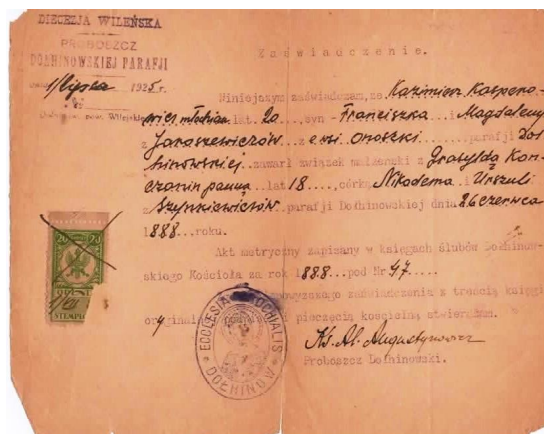 DIECEZJA WILEŃSKA
PROBOSZCZ
DOŁHINOWSKIEJ PARAFJI
1/lipca 1925 r.
Zaświadczenie.
Niniejszym zaświadczam, że Kazimierz Kaspero-
wicz młodzian lat 20 syn Franciszka i Magdaleny
z Jaroszewiczów z wsi Onoszki parafji Doł
hinowskiej zawarł związek małżeński z Gratyldą Kon
czanin panną lat 18, córką Nikodema i Urszuli
z Szynkiewiczów parafji Dołhinowskiej dnia 26 czerwca
1888 roku.
Akt metryczny zapisany w księgach ślubów Dołhinow-
skiego Kościoła za rok 1888 pod Nr 47
powyższego zaświadczenia z treścią księgi
pieczęcią kościelną stwierdzam.
Ks. Al. Augustynowicz
Proboszcz Dołhinowski.
20 20
ECCLESIA PAROCHIALIS
DOŁHINOW